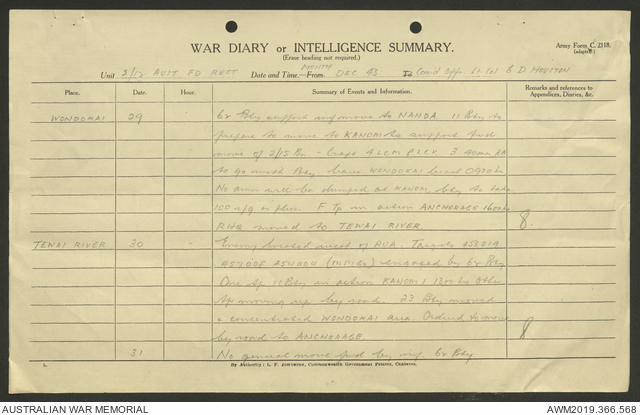 WAR DIARY or INTELLIGENCE SUMMARY.
(Erase heading not required.)
Army Form C. 2118.
(adapted)
Unit 2/12 AUST FD REGT Date and Time.—From MONTH DEC 43 To Comd Offr Lt Col B D HOUSTON
Place. Date. Hour. Summary of Events and Information. Remarks and references to Appendices, Diaries, &c.
WONDOKAI 29 62 Bty support inf move to NANDA 11 Bty to
prepare to move to KANOMI to support fwd
move of 2/15 Bn - Craft 4 LCM 3 40mm AA
to go with Bty leave WONDOKAI beach 0900 hr
No amn will be dumped at KANOMI, bty to take
100 r/g in place. F Tp in action ANCHORAGE 1600 hr
RHQ moved to TEWAI RIVER 8.
TEWAI RIVER 30 Enemy located west of AUA. Targets 453019
engaged by 62 Bty
One tp 11 Bty in action KANOMI 1300 hr other
tp moving up by road. 23 Bty moved
& concentrated WONDOKAI area. Ordered to move
by road to ANCHORAGE. 8
31 No general move fwd by inf. 62 Bty
L.
By Authority: L. F. Johnston, Commonwealth Government Printer, Canberra.
AUSTRALIAN WAR MEMORIAL
AWM2019.366.568